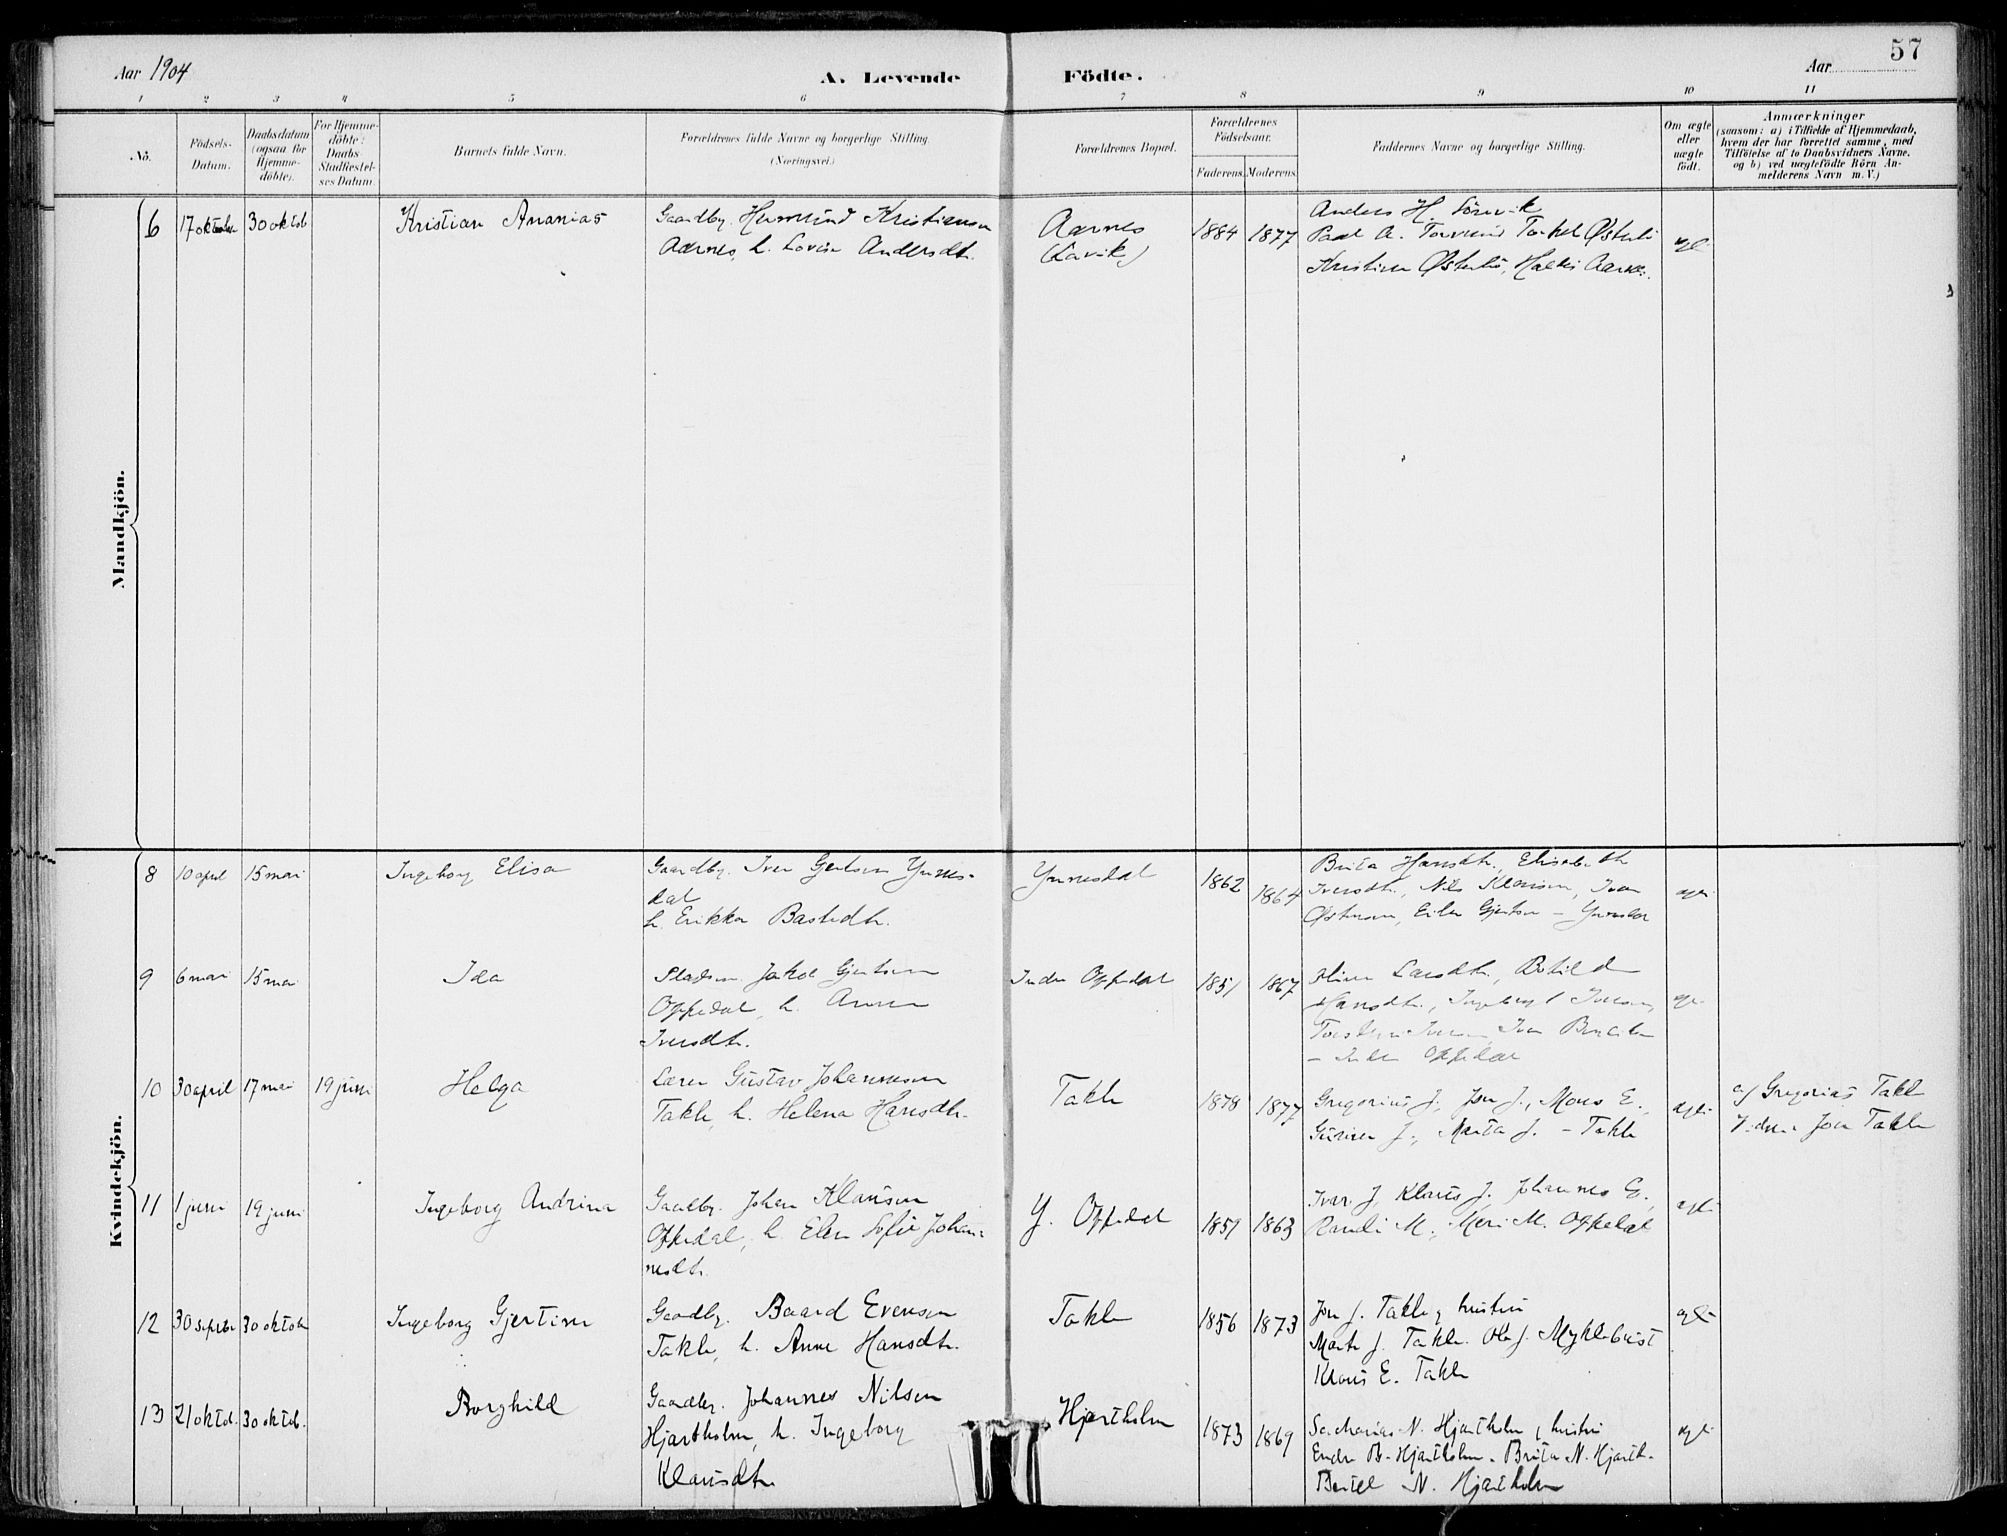 57
Aar 1904
A. Levende Födte.
Aar
1 2 3 4 5 6 7 8 9 10 11
Nô.
Födsels-Datum.
Daabsdatum (ogsaa for Hjemme-döbte).
For Hjemme-döbte: Daabs-Stadfæstel-ses Datum.
Barnets fulde Navn.
Forældrenes fulde Navne og borgerlige Stilling.
(Næringsvei.)
Forældrenes Bopæl.
Forældrenes Födselsaar.
Faderens. Moderens.
Faddernes Navne og borgerlige Stilling.
Om ægte eller uægte födt.
Anmærkninger
(saasom: a) i Tilfælde af Hjemmedaab,
hvem der har forrettet samme, med
Tilföielse af to Daabsvidners Navne.
og b) ved uægtefödte Börn An-
melderens Navn m. V.)
Mandkjön.
6 17 oktober 30 oktob
Kristian Ananias
Gaardbr. Hermund Kristiansen
Aarnes, h. Lovise Andersdtr.
Aarnes
(Lavik)
1884 1877
Anders H.
Paul A. Torvund Torkel Østerbø
Kristine Østerbø, Aarnes.
Kvindekjön.
8 10 april 15 mai
Ingeborg Elisa
Gaardbr. Iver Gjertsen Ynnes-
dal
h. Erikka Bastedtr.
Ynnesdal
1862 1864
Brita Hansdtr., Elisabeth
Iversdtr., Nils Klausen, Ivar
Gjertsen – Ynnesdal
9 6 mai 15 mai
Ida
Pladsm. Jakob Gjertsen
Oppedal, h. Anna
Iversdtr.
Indre Oppedal
1851 1867
Larsdtr., Botild
Hansdtr., Ingebrigt Iversen,
– Indre Oppedal
10 30 april 17 mai 19 juni
Helga
Lærer Gustav Johannesen
Takle, h. Helena Hansdtr.
Takle
1878 1877
Gregorius J., Jon J., Mons E.,
J., Marta J. – Takle
ægte
a/ Gregorius Takle
Jon Takle
11 1 juni 19 juni
Ingeborg Andrina
Gaardbr. Johan Klausen
Oppedal, h. Elen Sofie Johan-
nesdtr.
Y. Oppedal
1851 1863
Ivar J, Klaus J. Johannes E.,
Randi M., Meri M. Oppedal
ægte
12 30 septbr 30 oktob
Ingeborg Gjertine
Gaardbr. Baard Evensen
Takle, h. Anne Hansdtr.
Takle
1856 1873
Jon J. Takle og hustru
Marta J. Takle. Ole J. Myklebust
Klaus E. Takle
ægte
13 21 oktob. 30 oktob.
Borghild
Gaardbr. Johannes Nilsen
Hjartholm, h. Ingeborg
Klausdtr
Hjartholm
1873 1869
Sacharias N. Hjartholm og hustru
Endre B. Hjartholm. Brita N. Hjarth.
Bertel N. Hjartholm
ægte